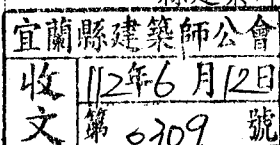 宜蘭縣建築師公會
收文
112年6月12日
第0309號